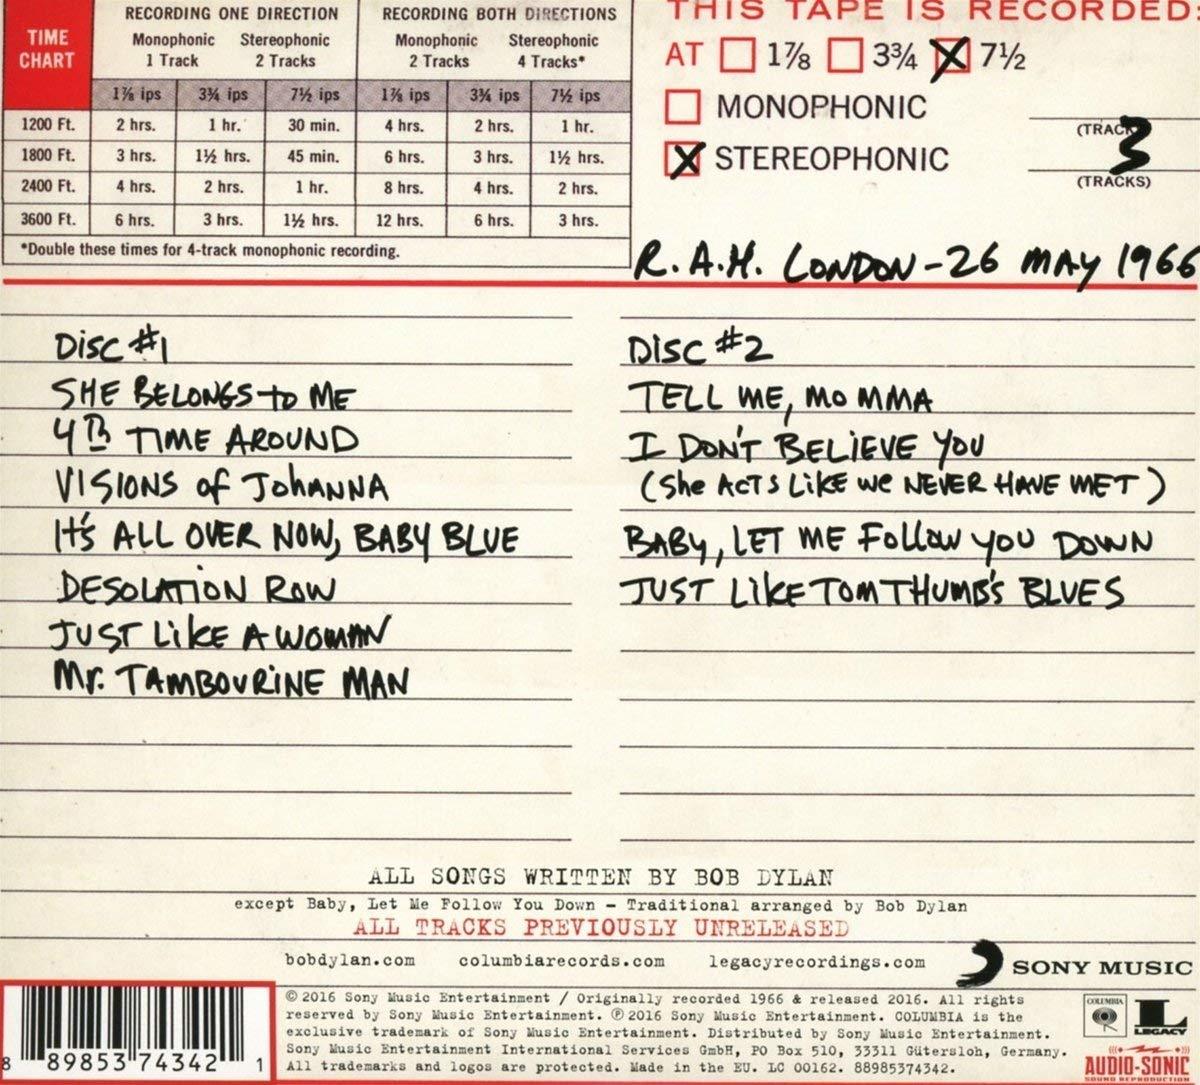 TIME CHART
RECORDING ONE DIRECTION
RECORDING BOTH DIRECTIONS
Monophonic 1 Track
Stereophonic 2 Tracks
Monophonic 2 Tracks
Stereophonic 4 Tracks*
1⅞ ips 3¾ ips 7½ ips 1⅞ ips 3¾ ips 7½ ips
1200 Ft. 2 hrs. 1 hr. 30 min. 4 hrs. 2 hrs. 1 hr.
1800 Ft. 3 hrs. 1½ hrs. 45 min. 6 hrs. 3 hrs. 1½ hrs.
2400 Ft. 4 hrs. 2 hrs. 1 hr. 8 hrs. 4 hrs. 2 hrs.
3600 Ft. 6 hrs. 3 hrs. 1½ hrs. 12 hrs. 6 hrs. 3 hrs.
*Double these times for 4-track monophonic recording.
THIS TAPE IS RECORDED:
AT 1⅞ 3¾ X 7½
MONOPHONIC
(TRACK
X STEREOPHONIC 3
(TRACKS)
R.A.H. LONDON - 26 MAY 1966
DISC #1
SHE BELONGS TO ME
4TH TIME AROUND
VISIONS of JOHANNA
IT'S ALL OVER NOW, BABY BLUE
DESOLATION ROW
JUST LIKE A WOMAN
Mr. TAMBOURINE MAN
DISC #2
TELL ME, MOMMA
I DON'T BELIEVE YOU
(She ACTS LIKE WE NEVER HAVE MET)
BABY, LET ME FOLLOW YOU DOWN
JUST LIKE TOM THUMB'S BLUES
ALL SONGS WRITTEN BY BOB DYLAN
except Baby, Let Me Follow You Down – Traditional arranged by Bob Dylan
ALL TRACKS PREVIOUSLY UNRELEASED
bobdylan.com columbiarecords.com legacyrecordings.com
SONY MUSIC
8 89853 74342 1
© 2016 Sony Music Entertainment / Originally recorded 1966 & released 2016. All rights
reserved by Sony Music Entertainment. ℗ 2016 Sony Music Entertainment. COLUMBIA is the
exclusive trademark of Sony Music Entertainment. Distributed by Sony Music Entertainment.
Sony Music Entertainment International Services GmbH, PO Box 510, 33311 Gütersloh, Germany.
All trademarks and logos are protected. Made in the EU. LC 00162. 88985374342.
COLUMBIA
L
LEGACY
AUDIO-SONIC
SOUND REPRODUCTION